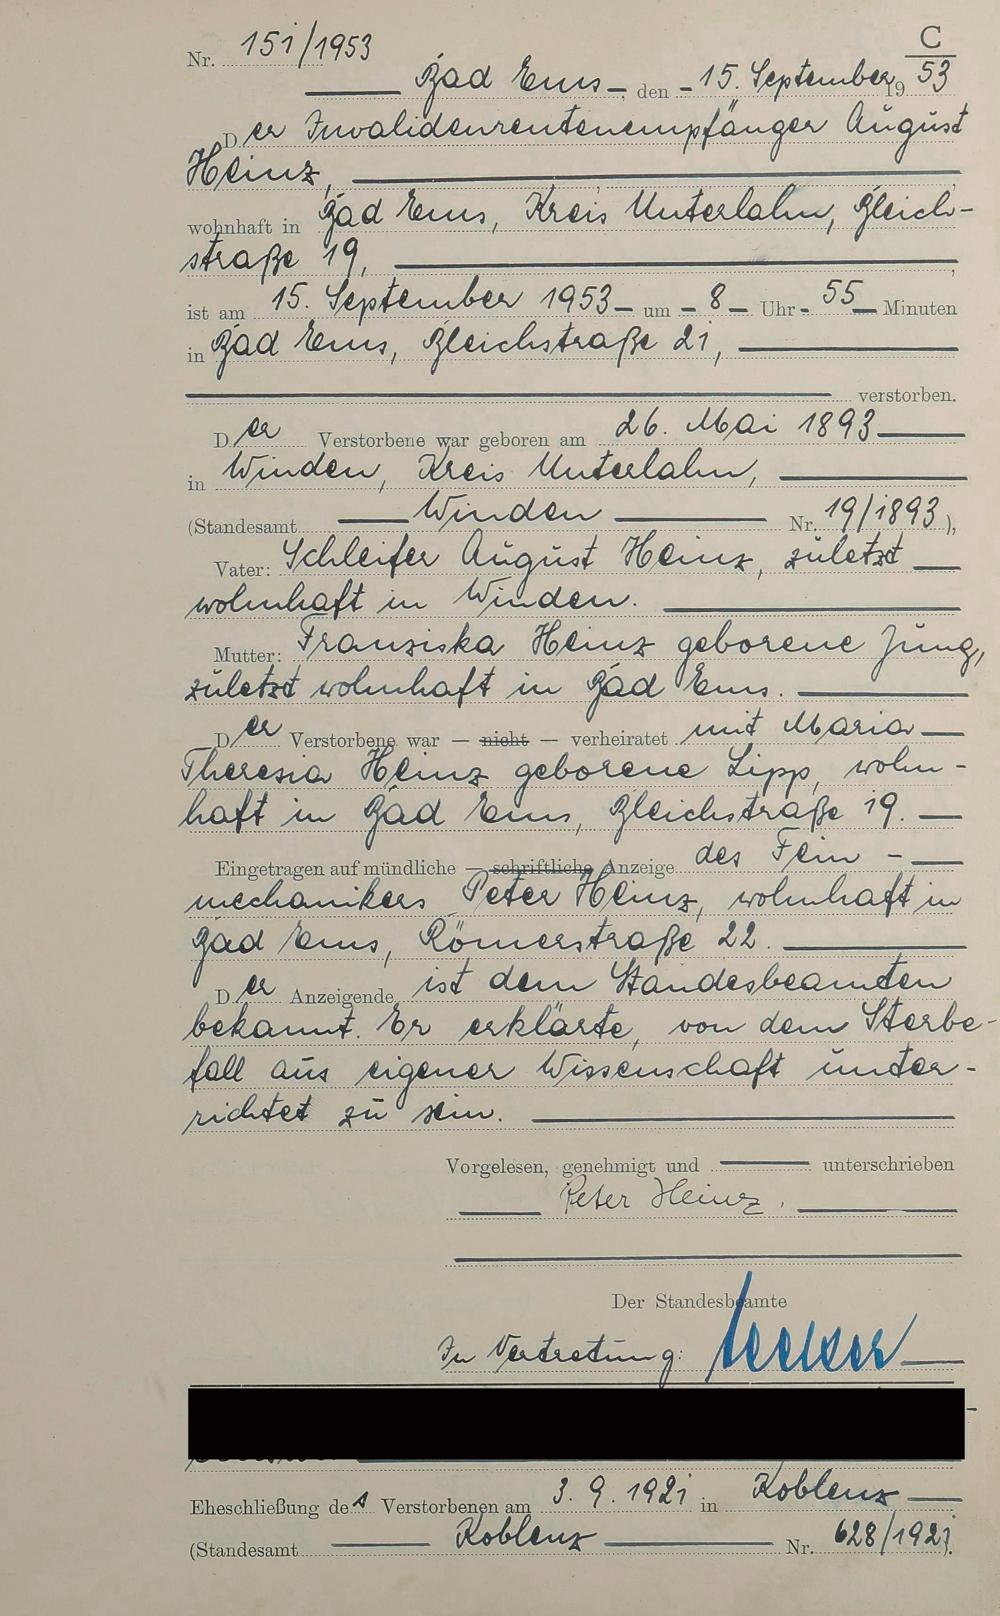 C
Nr. 151/1953
Bad Ems, den 15. September 1953
Der Invalidenrentenempfänger August
Heinz,
wohnhaft in Bad Ems, Kreis Unterlahn, Bleich-
straße 19,
ist am 15. September 1953 um 8 Uhr 55 Minuten
in Bad Ems, Bleichstraße 21,
verstorben.
Der Verstorbene war geboren am 26. Mai 1893
in Winden, Kreis Unterlahn,
(Standesamt Winden Nr. 19/1893),
Vater: Schleifer August Heinz, zuletzt
wohnhaft in Winden.
Mutter: Franziska Heinz geborene Jung,
zuletzt wohnhaft in Bad Ems.
Der Verstorbene war — nicht — verheiratet mit Maria
Theresia Heinz geborene Lipp, wohn-
haft in Bad Ems, Bleichstraße 19.
Eingetragen auf mündliche — schriftliche Anzeige des Fein-
mechanikers Peter Heinz, wohnhaft in
Bad Ems, Römerstraße 22.
Der Anzeigende ist dem Standesbeamten
bekannt. Er erklärte, von dem Sterbe-
fall aus eigener Wissenschaft unter-
richtet zu sein.
Vorgelesen, genehmigt und unterschrieben
Peter Heinz.
Der Standesbeamte
In Vertretung:
Eheschließung des Verstorbenen am 3. 9. 1921 in Koblenz
(Standesamt Koblenz Nr. 628/1921).